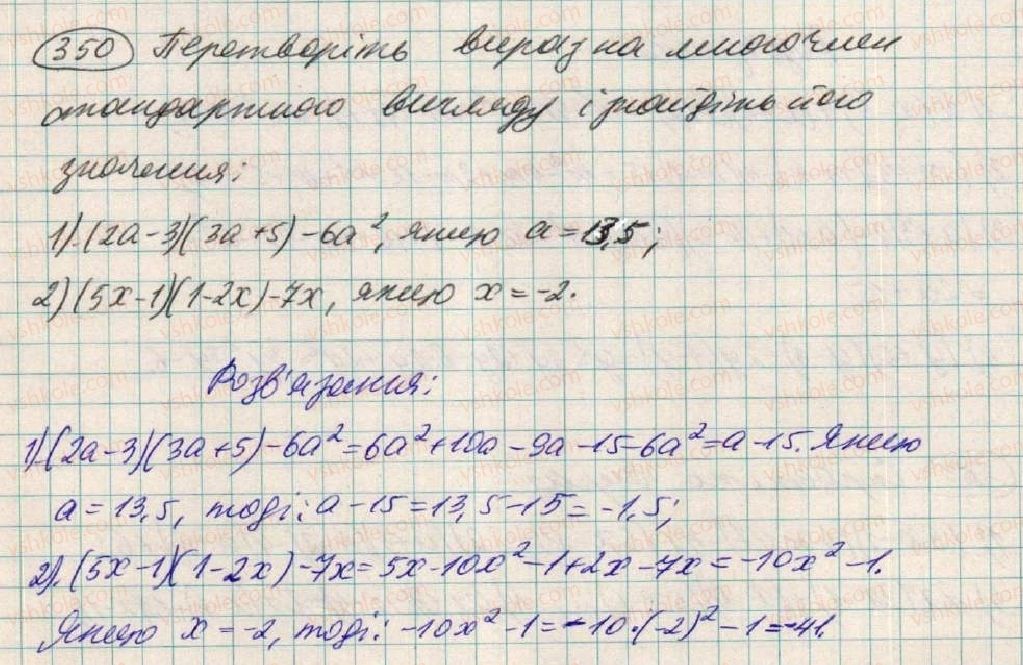 350 Перетворіть вираз на многочлен
стандартного вигляду і знайдіть його
значення:
1) (2a-3)(3a+5)-6a², якщо a=13,5;
2) (5x-1)(1-2x)-7x, якщо x=-2.
Розв'язання:
1) (2a-3)(3a+5)-6a²=6a²+10a-9a-15-6a²=a-15. Якщо
a=13,5, тоді: a-15=13,5-15=-1,5;
2). (5x-1)(1-2x)-7x=5x-10x²-1+2x-7x=-10x²-1.
Якщо x=-2, тоді: -10x²-1=-10·(-2)²-1=-41.